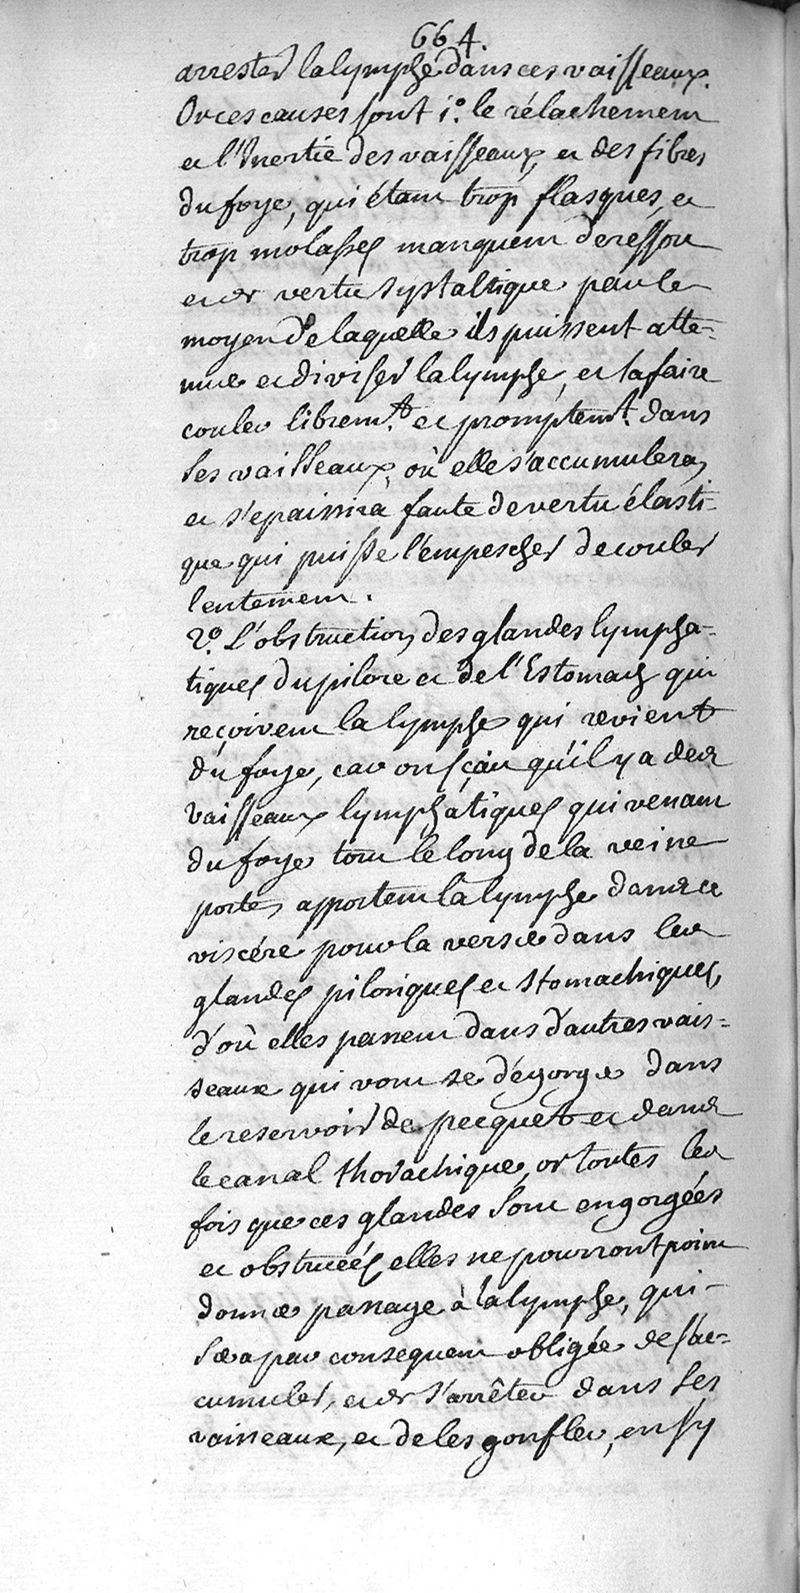 664.
arrester la lymphe dans ces vaisseaux.
Or ces causes sont 1.º le rélachement
et l'Inertie des vaisseaux, et des fibres
du foye, qui étant trop flasques, et
trop molasses manquent de ressort
et de vertu systaltique par le
moyen de laquelle ils puissent atte=
nuer et diviser la lymphe, et la faire
couler librem.t et promptem.t dans
ses vaisseaux, où elle s'accumulera,
et s'epaissira faute de vertu élasti-
que qui puisse l'empescher de couler
lentement.
2.º L'obstruction des glandes lympha-
tiques du pilore et de l'Estomach qui
reçoivent la lymphe qui revient
du foye, car on sçait qu'il y a des
vaisseaux lymphatiques qui venant
du foye tout le long de la veine
porte, apportent la lymphe dans ce
viscére pour la verser dans les
glandes piloriques et stomachiques,
d'où elles passent dans d'autres vais=
seaux qui vont se dégorger dans
le reservoir de pecquet et dans
le canal thorachique, or toutes les
fois que ces glandes sont engorgées
et obstrueés, elles ne pourront point
donner passage à la lymphe, qui
sera par consequent obligée de s'ac=
cumuler, et de s'arrêter dans ses
vaisseaux, et de les gonfler, ensy